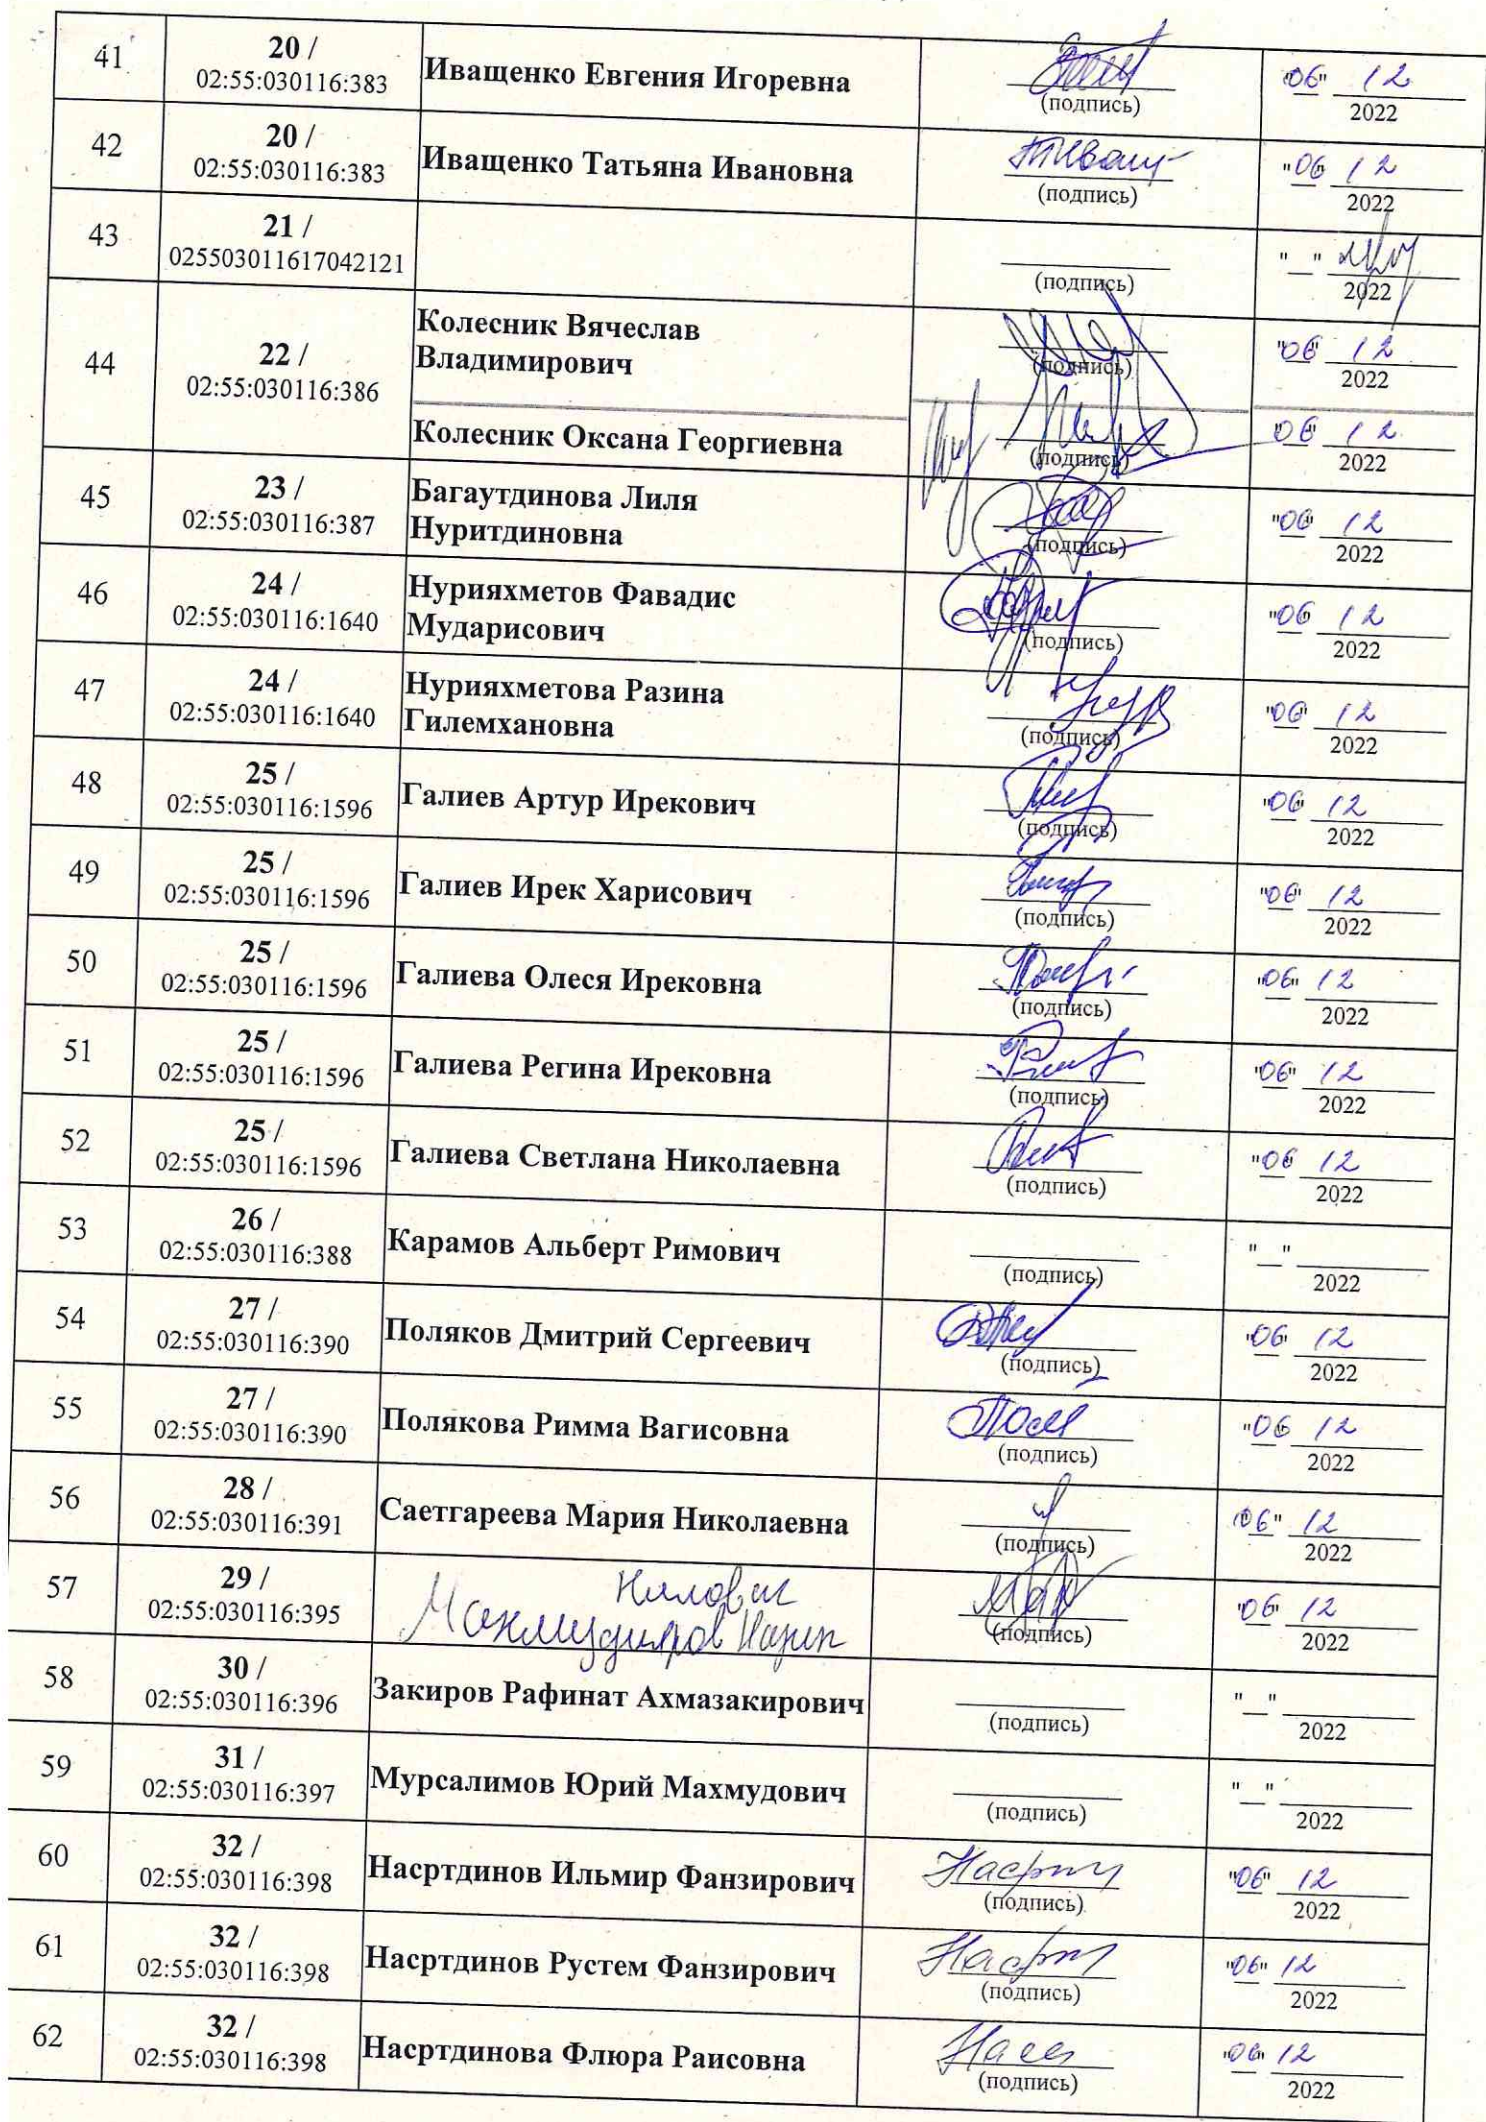 41
20 /
02:55:030116:383
Иващенко Евгения Игоревна
(подпись)
"06" 12
2022
42
20 /
02:55:030116:383
Иващенко Татьяна Ивановна
(подпись)
"06" 12
2022
43
21 /
025503011617042121
(подпись)
"__"
2022
44
22 /
02:55:030116:386
Колесник Вячеслав
Владимирович
(подпись)
"06" 12
2022
Колесник Оксана Георгиевна
(подпись)
"06" 12
2022
45
23 /
02:55:030116:387
Багаутдинова Лиля
Нуритдиновна
(подпись)
"06" 12
2022
46
24 /
02:55:030116:1640
Нурияхметов Фавадис
Мударисович
(подпись)
"06" 12
2022
47
24 /
02:55:030116:1640
Нурияхметова Разина
Гилемхановна
(подпись)
"06" 12
2022
48
25 /
02:55:030116:1596
Галиев Артур Ирекович
(подпись)
"06" 12
2022
49
25 /
02:55:030116:1596
Галиев Ирек Харисович
(подпись)
"06" 12
2022
50
25 /
02:55:030116:1596
Галиева Олеся Ирековна
(подпись)
"06" 12
2022
51
25 /
02:55:030116:1596
Галиева Регина Ирековна
(подпись)
"06" 12
2022
52
25 /
02:55:030116:1596
Галиева Светлана Николаевна
(подпись)
"06" 12
2022
53
26 /
02:55:030116:388
Карамов Альберт Римович
(подпись)
"__"
2022
54
27 /
02:55:030116:390
Поляков Дмитрий Сергеевич
(подпись)
"06" 12
2022
55
27 /
02:55:030116:390
Полякова Римма Вагисовна
(подпись)
"06 12
2022
56
28 /
02:55:030116:391
Саетгареева Мария Николаевна
(подпись)
"06" 12
2022
57
29 /
02:55:030116:395
(подпись)
"06" 12
2022
58
30 /
02:55:030116:396
Закиров Рафинат Ахмазакирович
(подпись)
"__"
2022
59
31 /
02:55:030116:397
Мурсалимов Юрий Махмудович
(подпись)
"__"
2022
60
32 /
02:55:030116:398
Насртдинов Ильмир Фанзирович
(подпись)
"06" 12
2022
61
32 /
02:55:030116:398
Насртдинов Рустем Фанзирович
(подпись)
"06" 12
2022
62
32 /
02:55:030116:398
Насртдинова Флюра Раисовна
(подпись)
"06" 12
2022